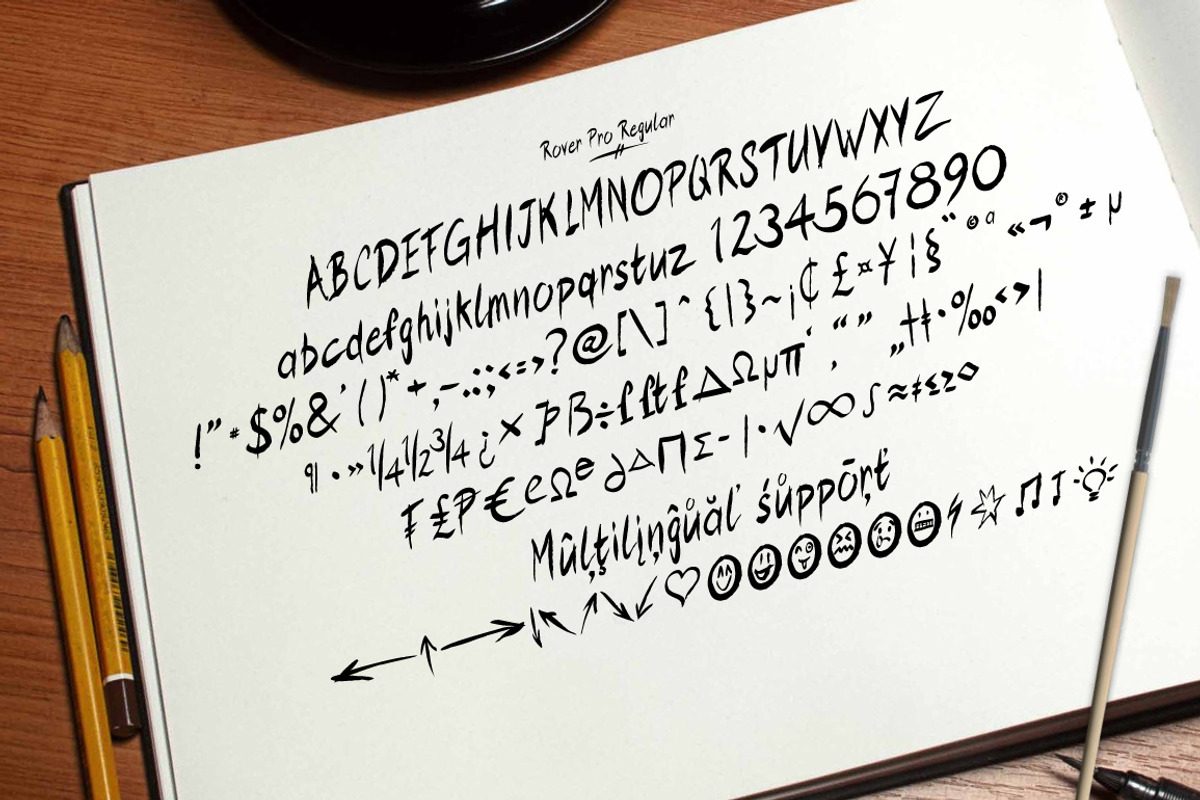 Rover Pro Regular
ABCDEFGHIJKLMNOPQRSTUVWXYZ
abcdefghijklmnopqrstuz 1234567890
!"*$%&'()*+,-.:;<=>?@[\]^{|}~¡¢£¤¥¦§¨©ª«¬®±µ
¶·»¼½¾¿×Þß÷ƒſtƒ∆Ωµπ‘‚“”„†‡•‰‹›|
₮₤₱€℮Ω℮∂∆∏∑-|·√∞∫≈≠≤≥◊
Mûļţilįņĝůăľ śůppōŗť
←↑→↓↖↗↘↙♡